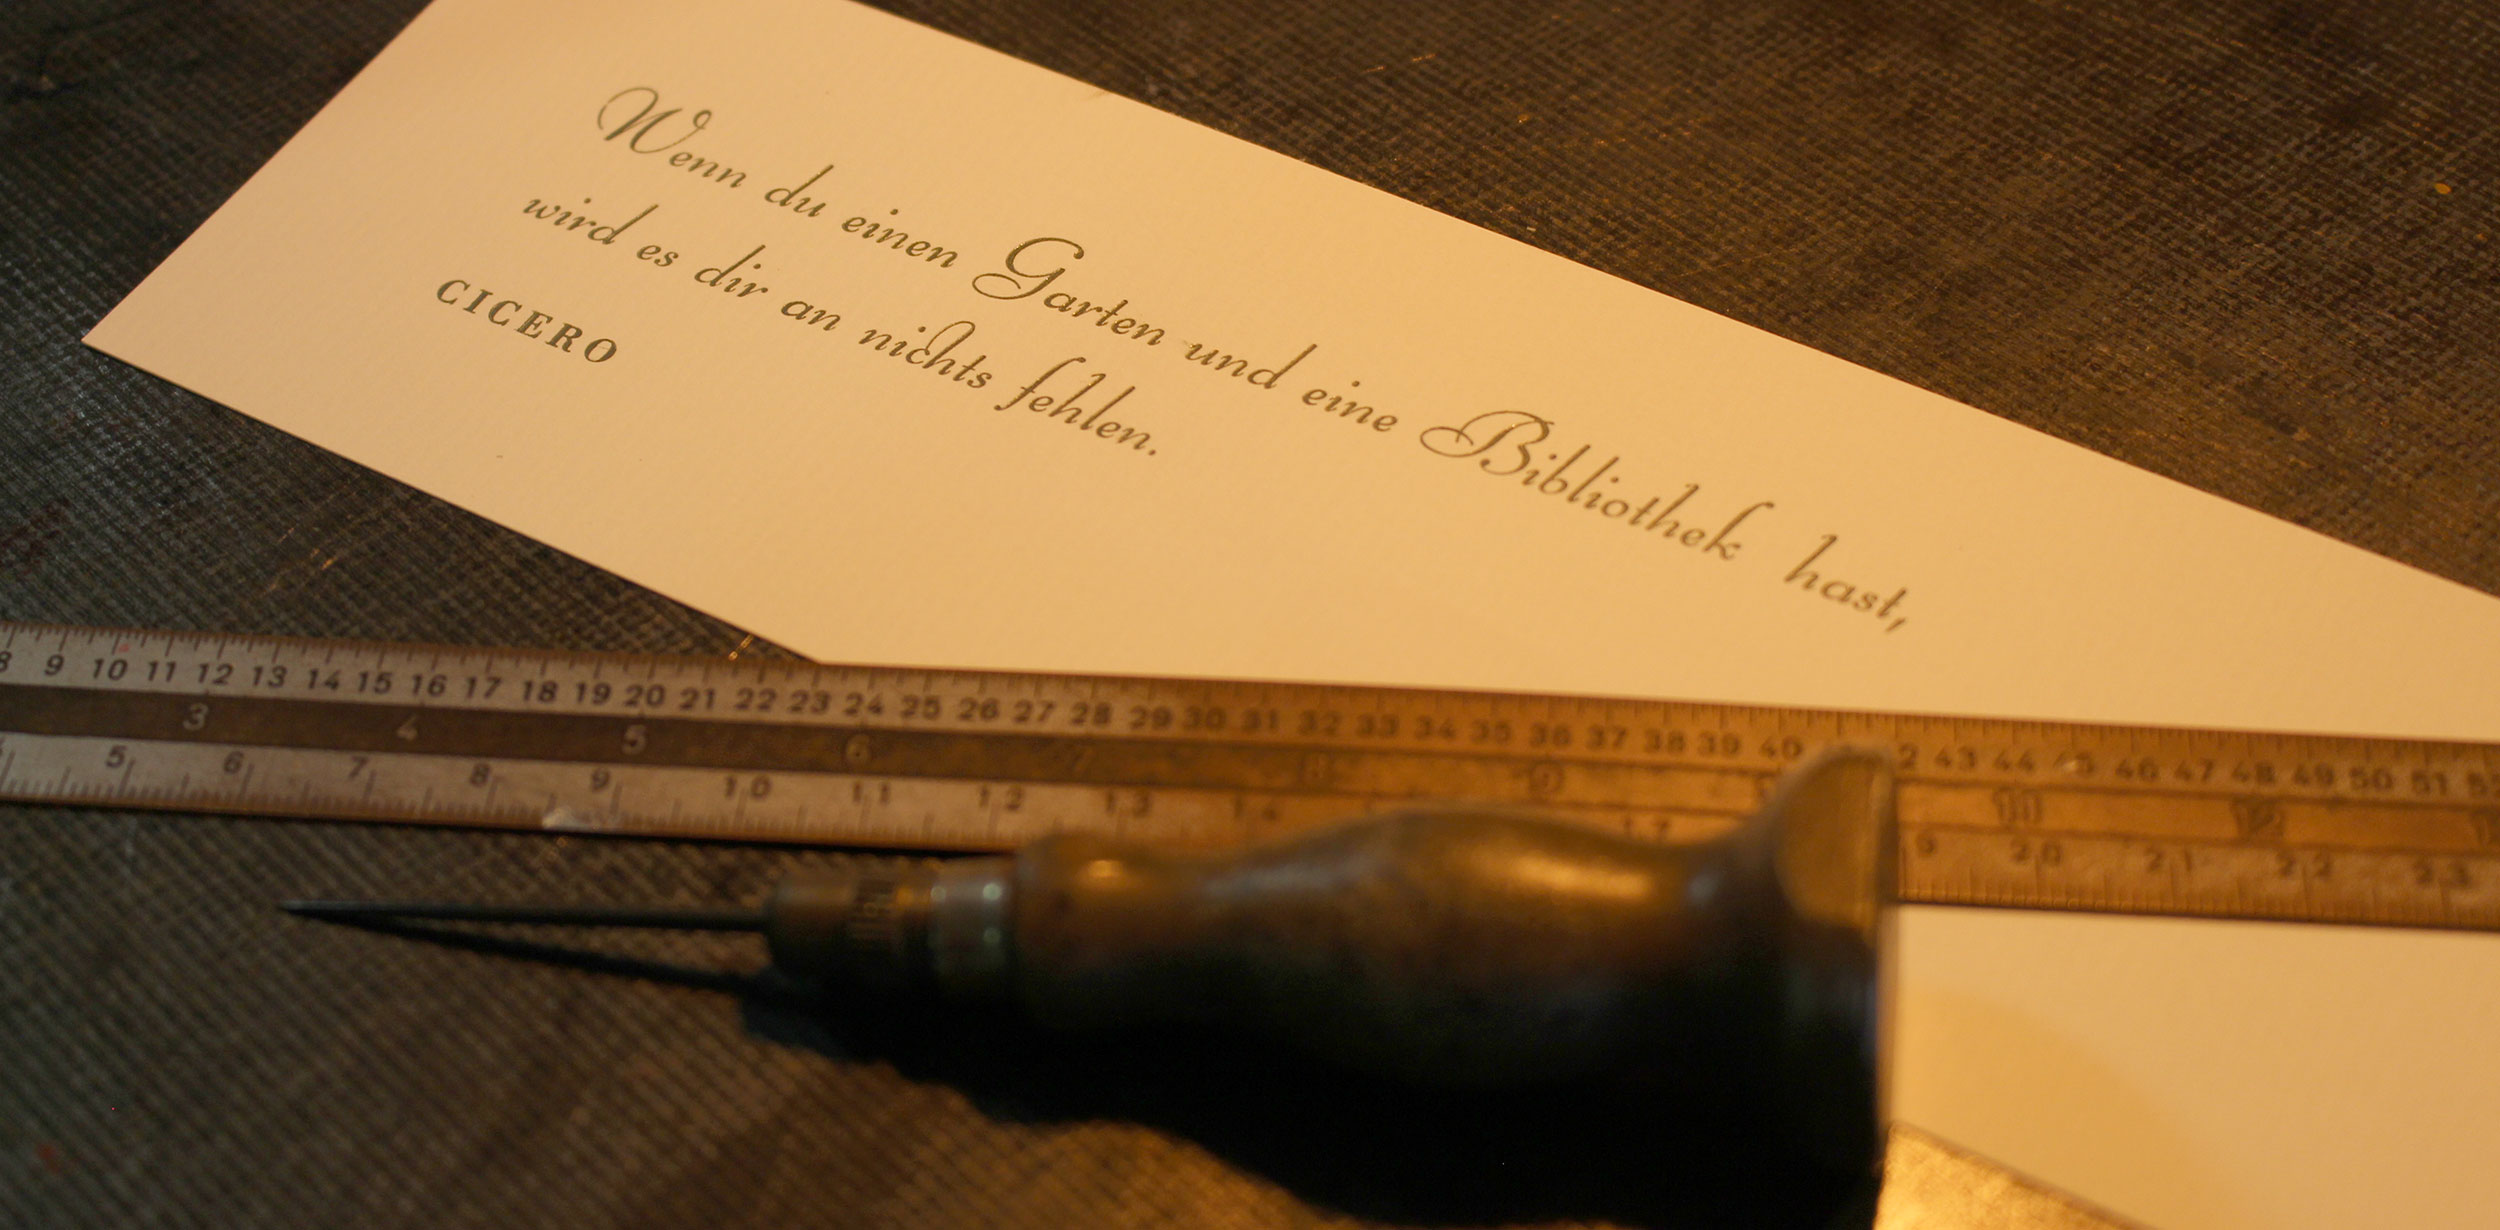 Wenn du einen Garten und eine Bibliothek hast,
wird es dir an nichts fehlen.
CICERO
8 9 10 11 12 13 14 15 16 17 18 19 20 21 22 23 24 25 26 27 28 29 30 31 32 33 34 35 36 37 38 39 40 2 43 44 45 46 47 48 49 50 51
3 4 5 6 7 8 9 11 12
5 6 7 8 9 10 11 12 13 14 17 9 20 21 22 23